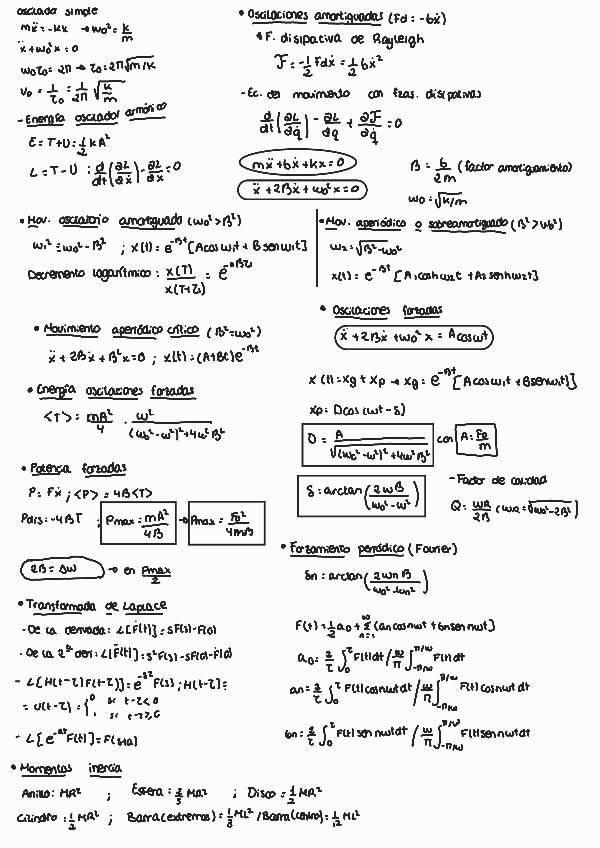 oscilador simple
mẍ = -kx → ω₀² = k/m
ẍ + ω₀²x = 0
ω₀τ₀ = 2π → τ₀ = 2π√m/k
ν₀ = 1/τ₀ = 1/2π √k/m
- Energía oscilador armónico
E = T+U = 1/2 kA²
L = T - U : d/dt(∂L/∂ẋ) - ∂L/∂x = 0
• Oscilaciones amortiguadas (Fd = -bẋ)
F. disipativa de Rayleigh
F = -1/2 Fdẋ = 1/2 bẋ²
- Ec. del movimiento con fzas. disipativas
d/dt(∂L/∂q̇) - ∂L/∂q + ∂F/∂q̇ = 0
mẍ + bẋ + kx = 0
ẍ + 2Bẋ + ω₀²x = 0
B = b/2m (factor amortiguamiento)
ω₀ = √k/m
• Mov. oscilatorio amortiguado (ω₀² > B²)
ω₁² = ω₀² - B² ; x(t) = e^-Bt [A cos ω₁t + B sen ω₁t]
Decremento logarítmico : x(T)/x(T+τ₁)
• Mov. aperiódico o sobreamortiguado (B² > ω₀²)
ω₂ = √B² - ω₀²
x(t) = e^-Bt [A₁ cosh ω₂t + A₂ senh ω₂t]
• Movimiento aperiódico crítico (B² = ω₀²)
ẍ + 2Bẋ + B²x = 0 ; x(t) = (A+Bt)e^-Bt
• Oscilaciones forzadas
ẍ + 2Bẋ + ω₀²x = A cos ωt
x(t) = xg + xp → xg = e^-Bt [A cos ω₁t + B sen ω₁t]
xp = D cos (ωt - δ)
D = A/√(ω₀² - ω²)² + 4ω²B² con A = F₀/m
δ = arctan(2ωB/ω₀² - ω²)
- Factor de calidad
Q = ωR/2B (ωR = √ω₀² - 2B²)
• Energía oscilaciones forzadas
<T> = mA²/4 · ω²/(ω₀² - ω²)² + 4ω²B²
• Potencia forzadas
P = Fẋ ; <P> = 4B<T>
Pdis = -4BT ; Pmax = mA²/4B → Pmax = F₀²/4mB
2B = Δω → en Pmax/2
• Forzamiento periódico (Fourier)
δn = arctan(2ωnB/ω₀² - ωn²)
F(t) = 1/2 a₀ + Σ (an cos nωt + bn sen nωt)
a₀ = 2/τ ∫₀^τ F(t)dt / ω/π ∫_-π/ω^π/ω F(t)dt
an = 2/τ ∫₀^τ F(t)cos nωt dt / ω/π ∫_-π/ω^π/ω F(t)cos nωt dt
bn = 2/τ ∫₀^τ F(t)sen nωt dt / ω/π ∫_-π/ω^π/ω F(t)sen nωt dt
• Transformada de Laplace
- De la derivada: L[Ḟ(t)] = sF(s) - F(0)
- De la 2ª deri: L[F̈(t)] = s²F(s) - sF(0) - Ḟ(0)
- L[H(t-τ)F(t-τ)] = e^-sτ F(s) ; H(t-τ) =
= U(t-τ) = { 0 si t-τ<0
1 si t-τ≥0
- L[e^-at F(t)] = F(s+a)
• Momentos inercia
Anillo: MR² ; Esfera: 2/5 MR² ; Disco: 1/2 MR²
Cilindro: 1/2 MR² ; Barra(extremos) = 1/3 ML² / Barra(centro) = 1/12 ML²